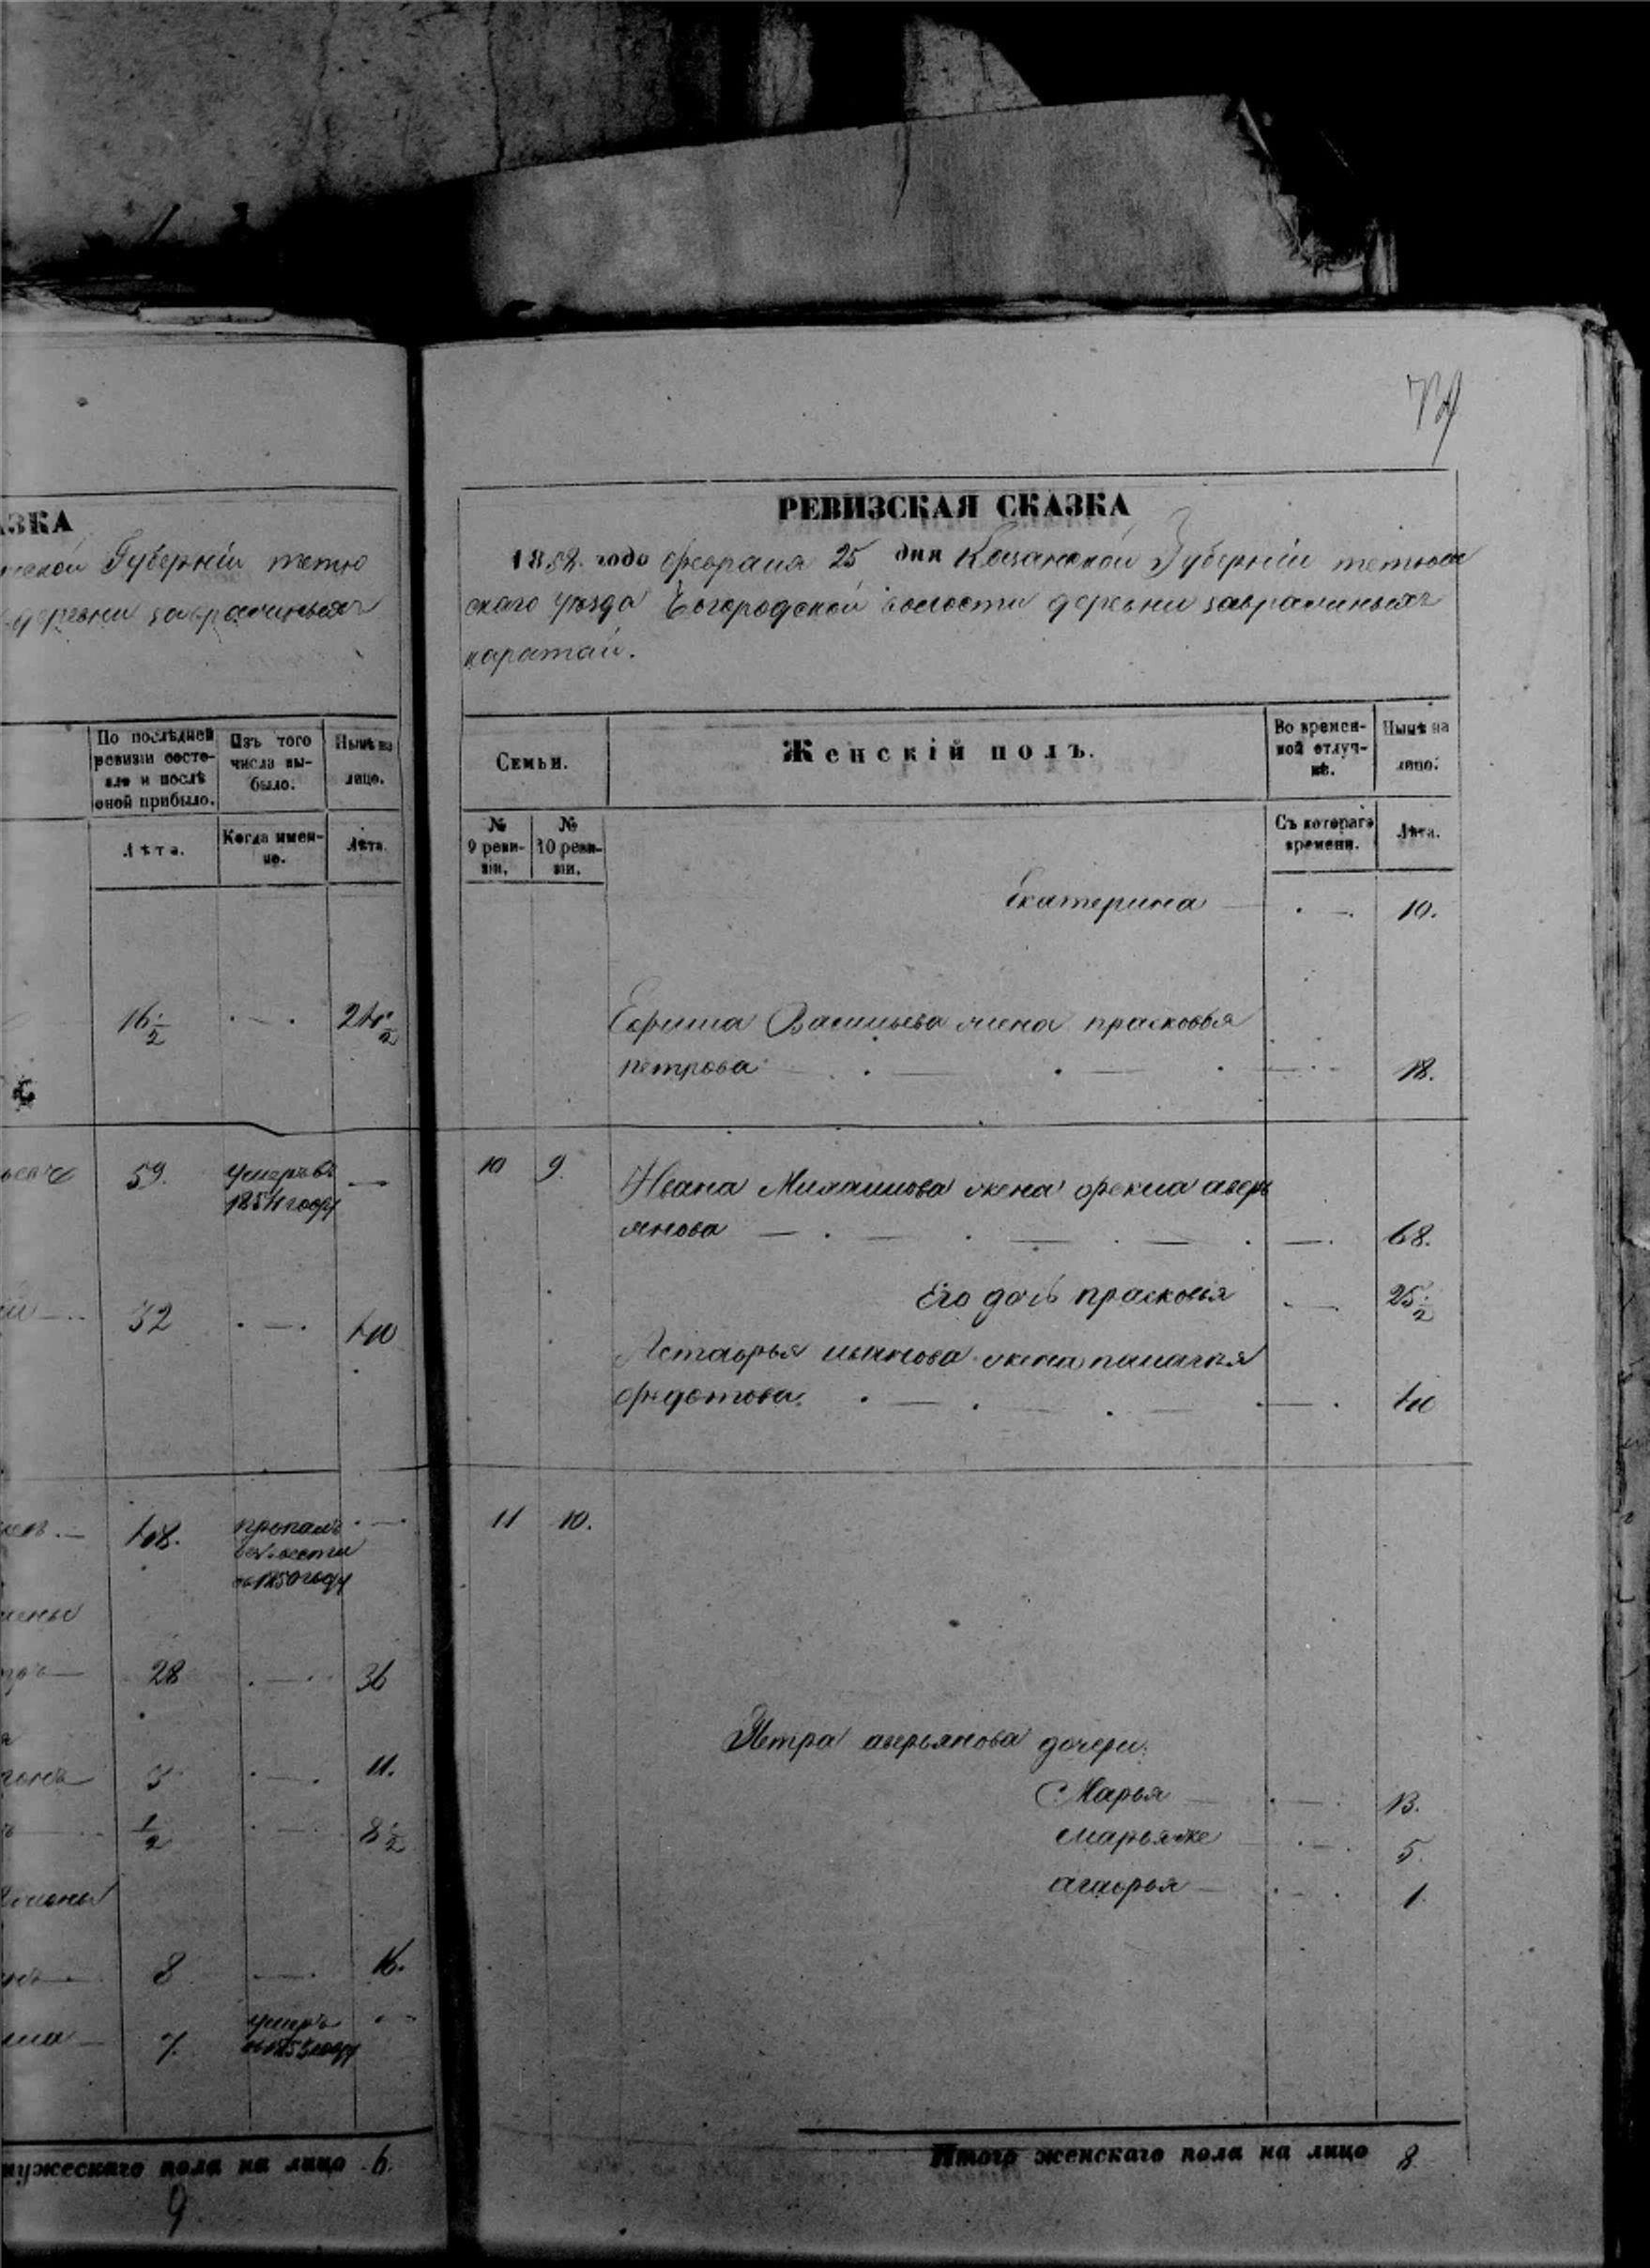 74
ЗКА
Губерніи тетю
деревни завражныхъ
По послѣдней ревизіи состояло и послѣ оной прибыло.
Изъ того числа выбыло.
Нынѣ на лицо.
Лѣта.
Когда именно.
Лѣта.
16½ 24½
59. умеръ въ
1854 году
32 40
48. пропалъ
безъ вести
въ 1850 году
28 36
3 11.
½ 8½
8 16.
7. умеръ
въ 1853 году
мужескаго пола на лицо 6.
9
РЕВИЗСКАЯ СКАЗКА
1858. года февраля 25 дня Казанской Губерніи тетюш
скаго уѣзда Богородской волости деревни завражныхъ
каратай.
Семьи.
Женскій полъ.
Во временной отлучкѣ.
Нынѣ на лицо.
№ 9 ревизіи.
№ 10 ревизіи.
Съ котораго времени.
Лѣта.
Екатерина 10.
Ефима Васильева жена прасковья
петрова 18.
10 9. Ивана Михайлова жена фекла аверь
янова 68.
Его дочь прасковья 25½
Астафья иванова жена палагея
федотова. 40
11 10.
Петра аверьянова дочери:
Марья 13.
марья же 5.
агафья 1.
Итого женскаго пола на лицо 8